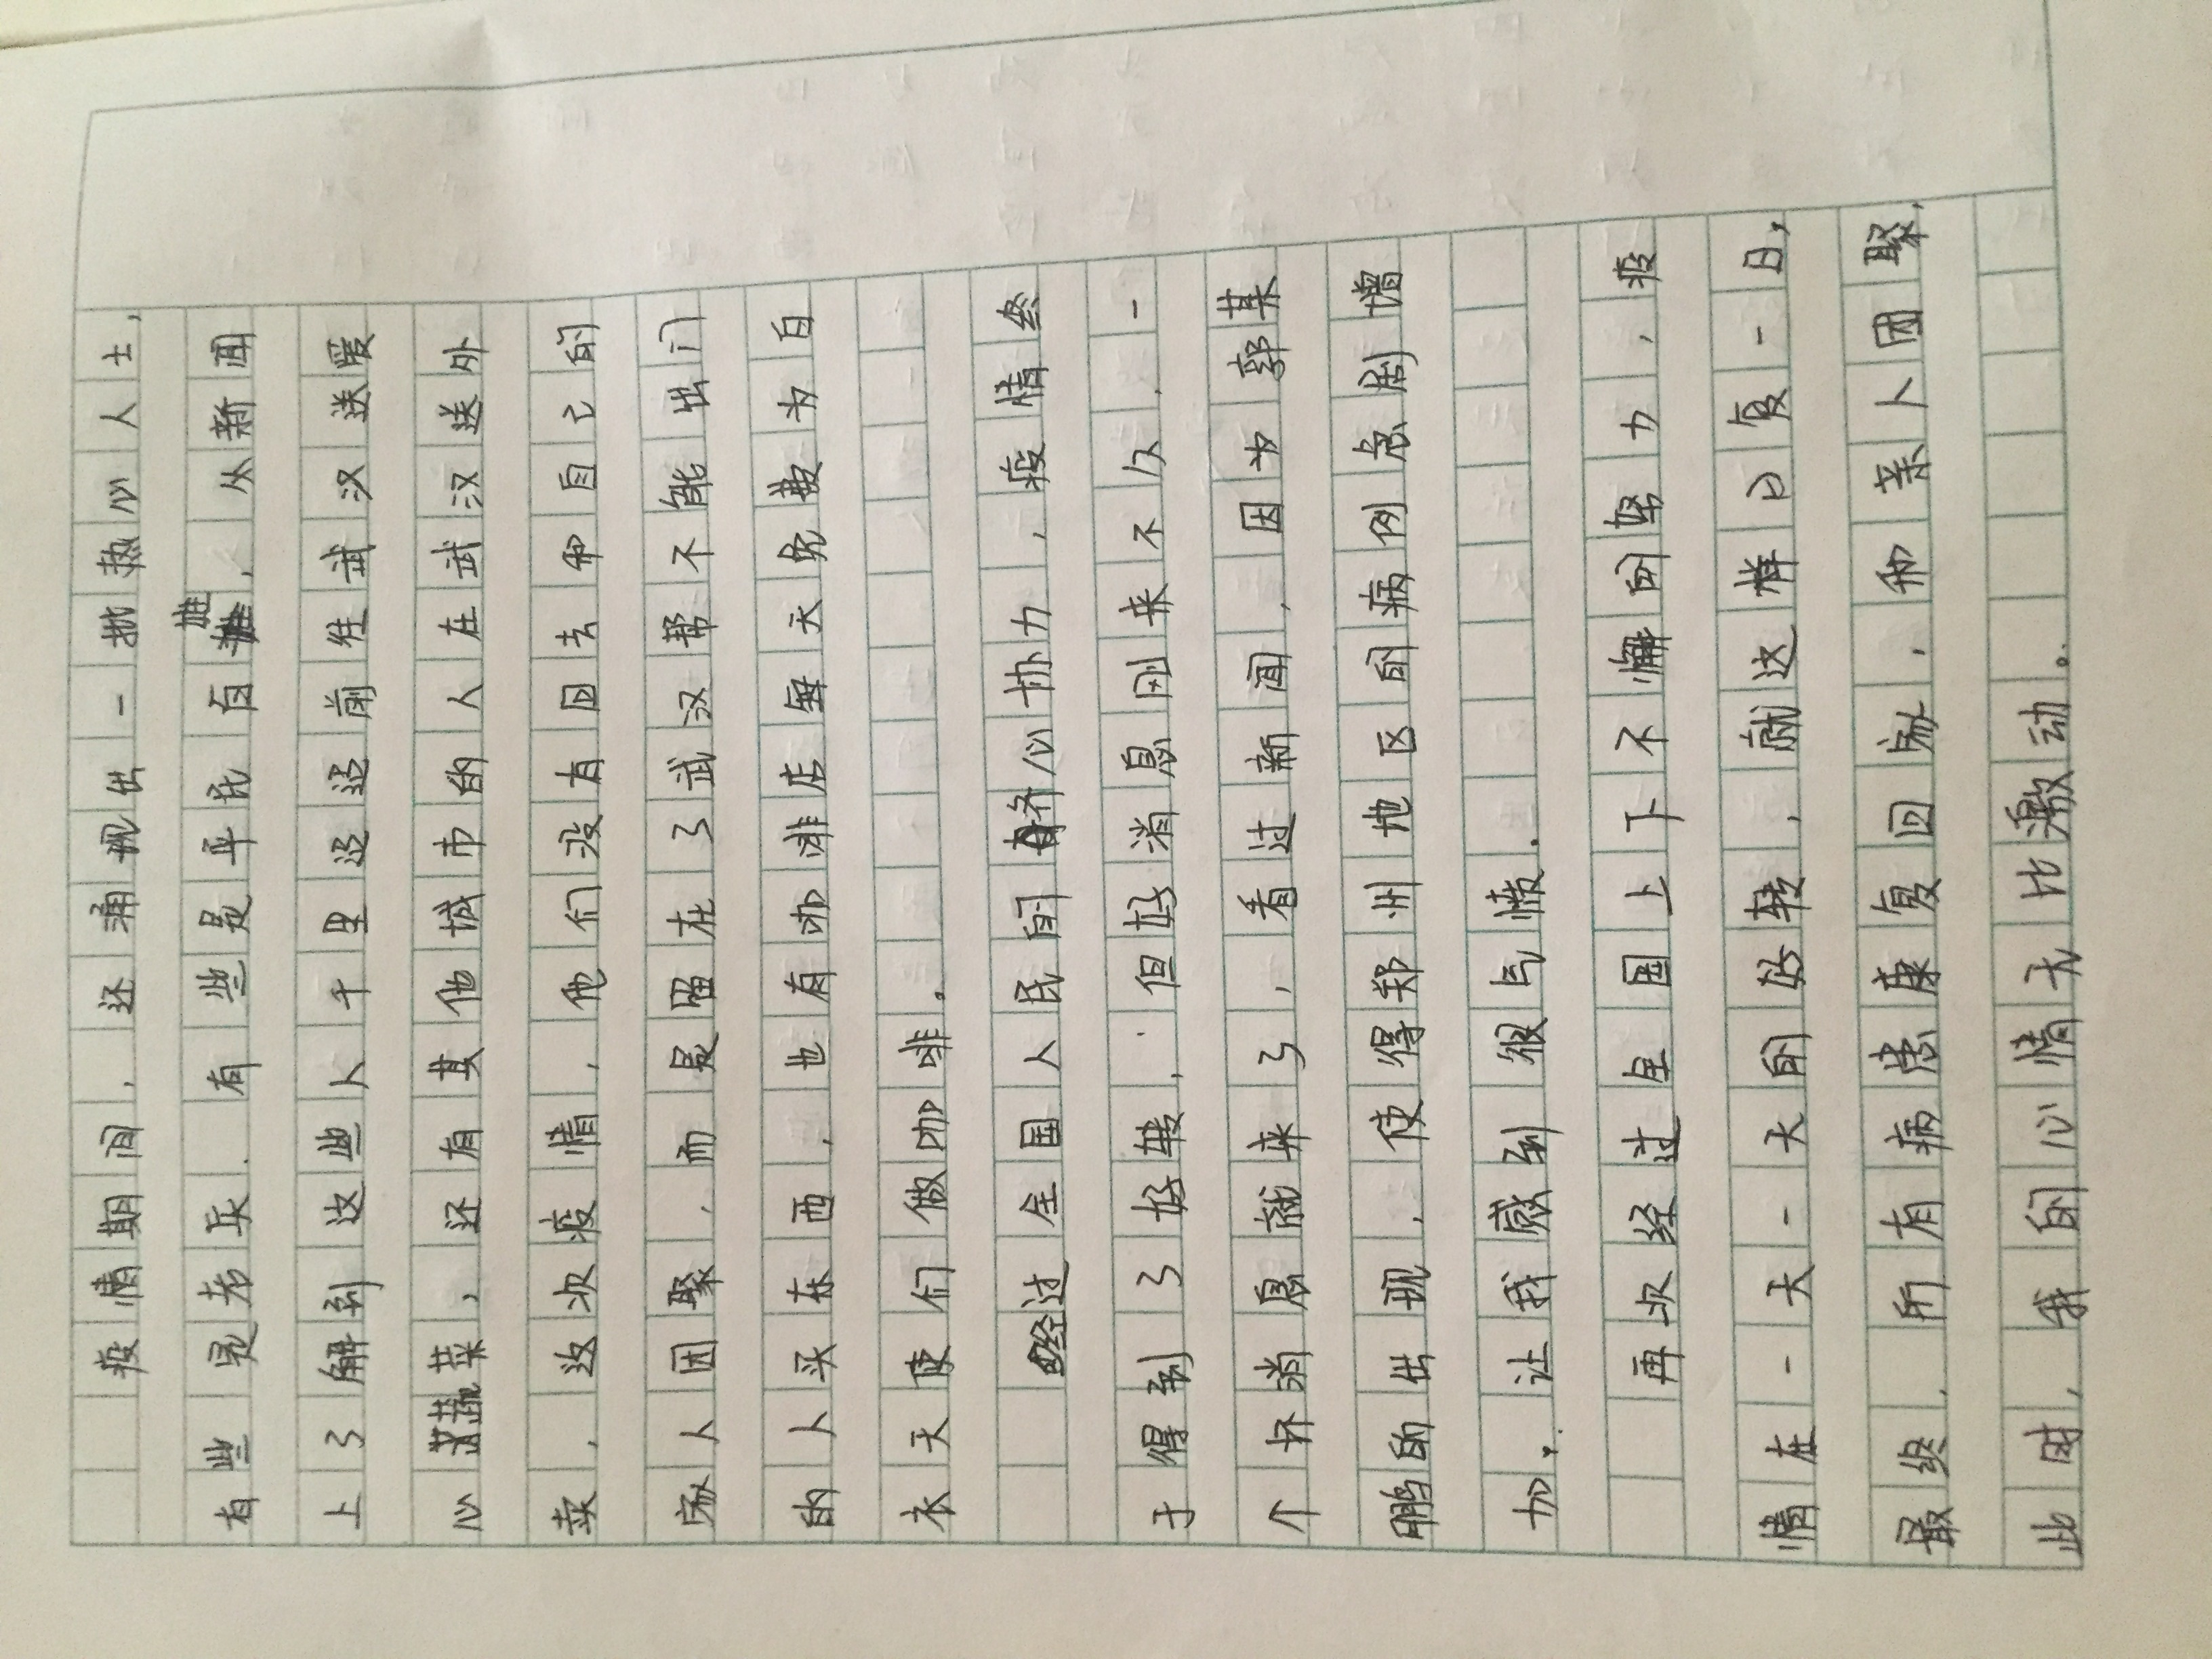 疫情期间，还涌现出一批热心人士，
有些是老兵，有些是平民百姓，从新闻
上了解到这些人千里迢迢前往武汉送暖
心蔬菜，还有其他城市的人在武汉送外
卖，这次疫情，他们没有回去和自己的
家人团聚，而是留在了武汉帮不能出门
的人买东西，也有咖啡店每天免费为白
衣天使们做咖啡。
经过全国人民的齐心协力，疫情终
于得到了好转，但好消息刚来不久，一
个坏消息就来了，看过新闻，因为郭某
鹏的出现，使得郑州地区的病例急剧增
加，让我感到很气愤。
再次经过全国上下不懈的努力，疫
情在一天一天的好转，就这样日复一日，
最终，所有病患康复回家，和亲人团聚，
此时，我的心情无比激动。